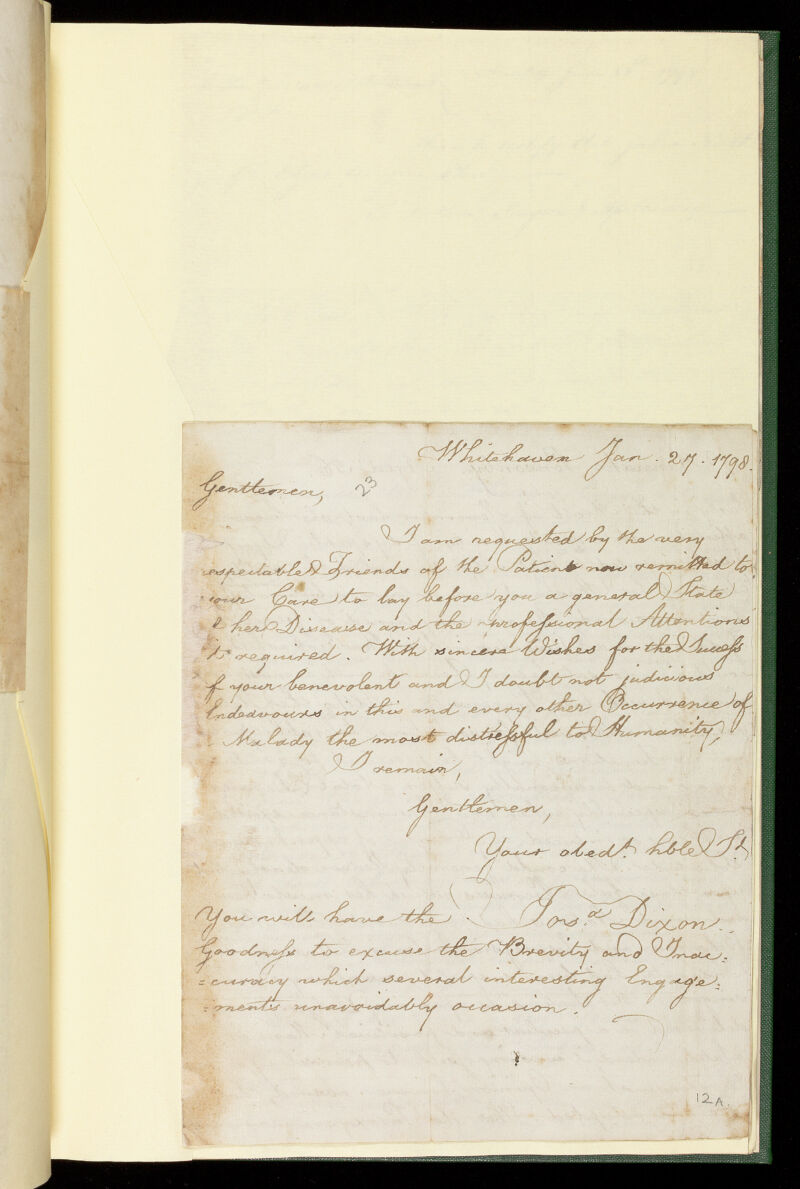 Whitehaven Jan. 27. 1798.
Gentlemen,
23
I am requested by the very
respectable Friends of the Patient now remitted to
your Care to lay before you a general State
her Disease and the Professional Attentions
it required. With sincere Wishes for the Success
of your benevolent and I doubt not judicious
Endeavours in this and every other Occurrence of
Malady the most distressful to Humanity,
I remain,
Gentlemen,
Your obedt. hble St.
Dixon.
You will have the
Goodness to excuse the Brevity and Inac:
=curacy which several interesting Engage:
=ments unavoidably occasion.
12A.